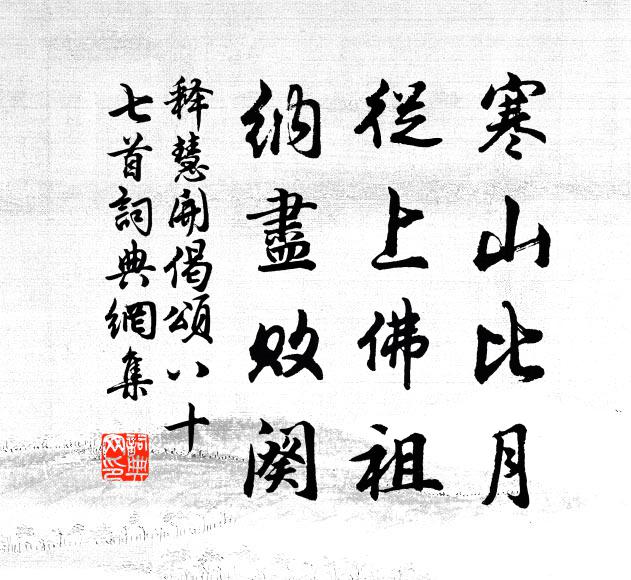 寒山比月
從上佛祖
納盡敗闕
釋慧開偈頌八十
七首詞典網集
詞典网印